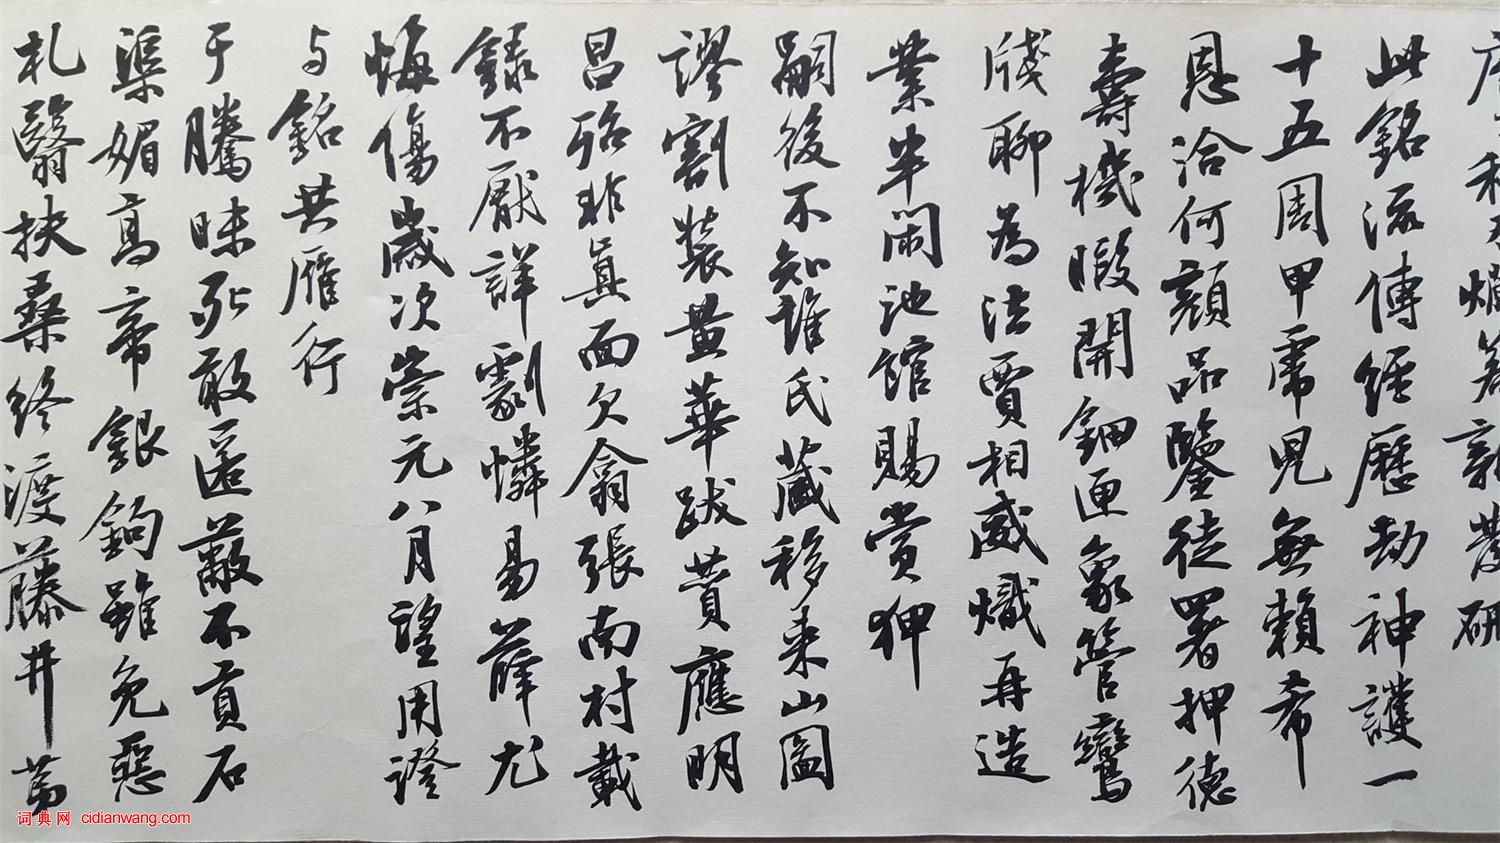 此銘流傳經歷劫神護一
十五周甲虎兒無賴希
恩洽何顏品鑒徒署押德
壽機暇開鈿匣象管鸞
牋聊為法賈相威熾再造
業半閑池館賜賞狎
嗣後不知誰氏藏移來山圖
謬割裝畫華跋贊應明
昌殆非真面欠翕張南村載
錄不厭詳劚憐易薛尤
悔傷歲次崇元八月望用證
与銘共雁行
于騰昧死敢匿蔽不貢石
渠媚高帝銀鉤雖免惡
札翳扶桑終渡藤井
词典网 cidianwang.com